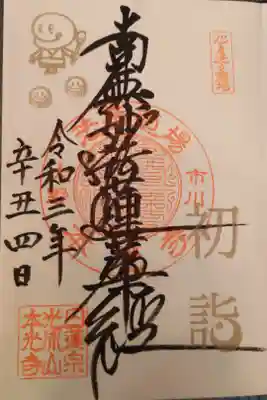 南無妙法蓮華経
市川
初詣
令和三年
辛丑四日
日蓮宗
本光寺